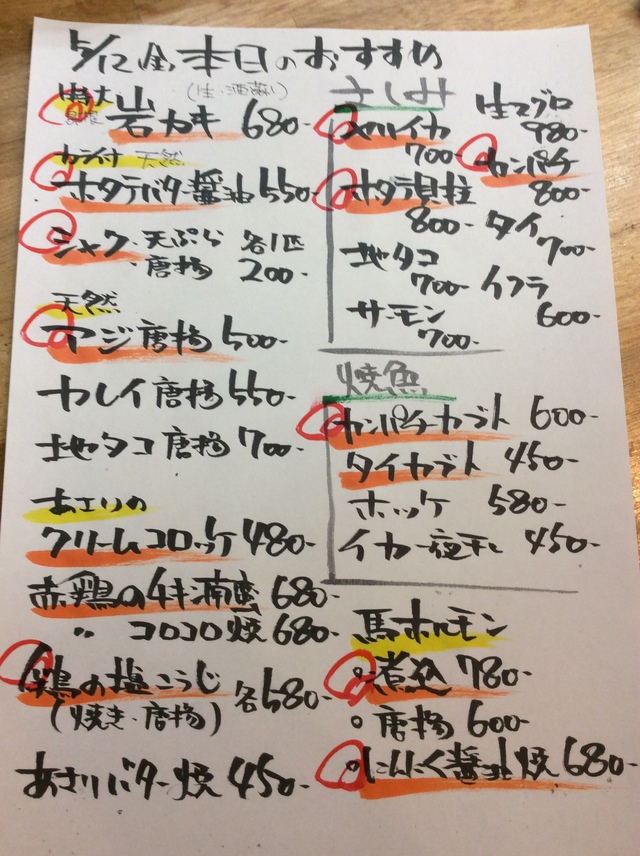 5/12(金)本日のおすすめ
特大 (生・酒蒸し)
岩カキ 680-
カラ付 天然
ホタテバター醤油 550-
シャコ・天ぷら 各1匹
・唐揚 200-
天然
アジ唐揚 500-
カレイ唐揚 550-
地タコ唐揚 700-
あさりの
クリームコロッケ 480-
赤鶏のチキン南蛮 680-
〃 コロコロ焼 680-
鶏の塩こうじ 各580-
(焼き・唐揚)
あさりバター焼 450-
さしみ
スルイカ
700-
ホタテ貝柱
800-
地タコ
700-
サーモン
700-
生マグロ
980-
カンパチ
800-
タイ
700-
イワシ
600-
焼魚
カンパチカブト 600-
タイカブト 450-
ホッケ 580-
イカ一夜干し 450-
馬ホルモン
○煮込 780-
○唐揚 600-
○にんにく醤油焼 680-